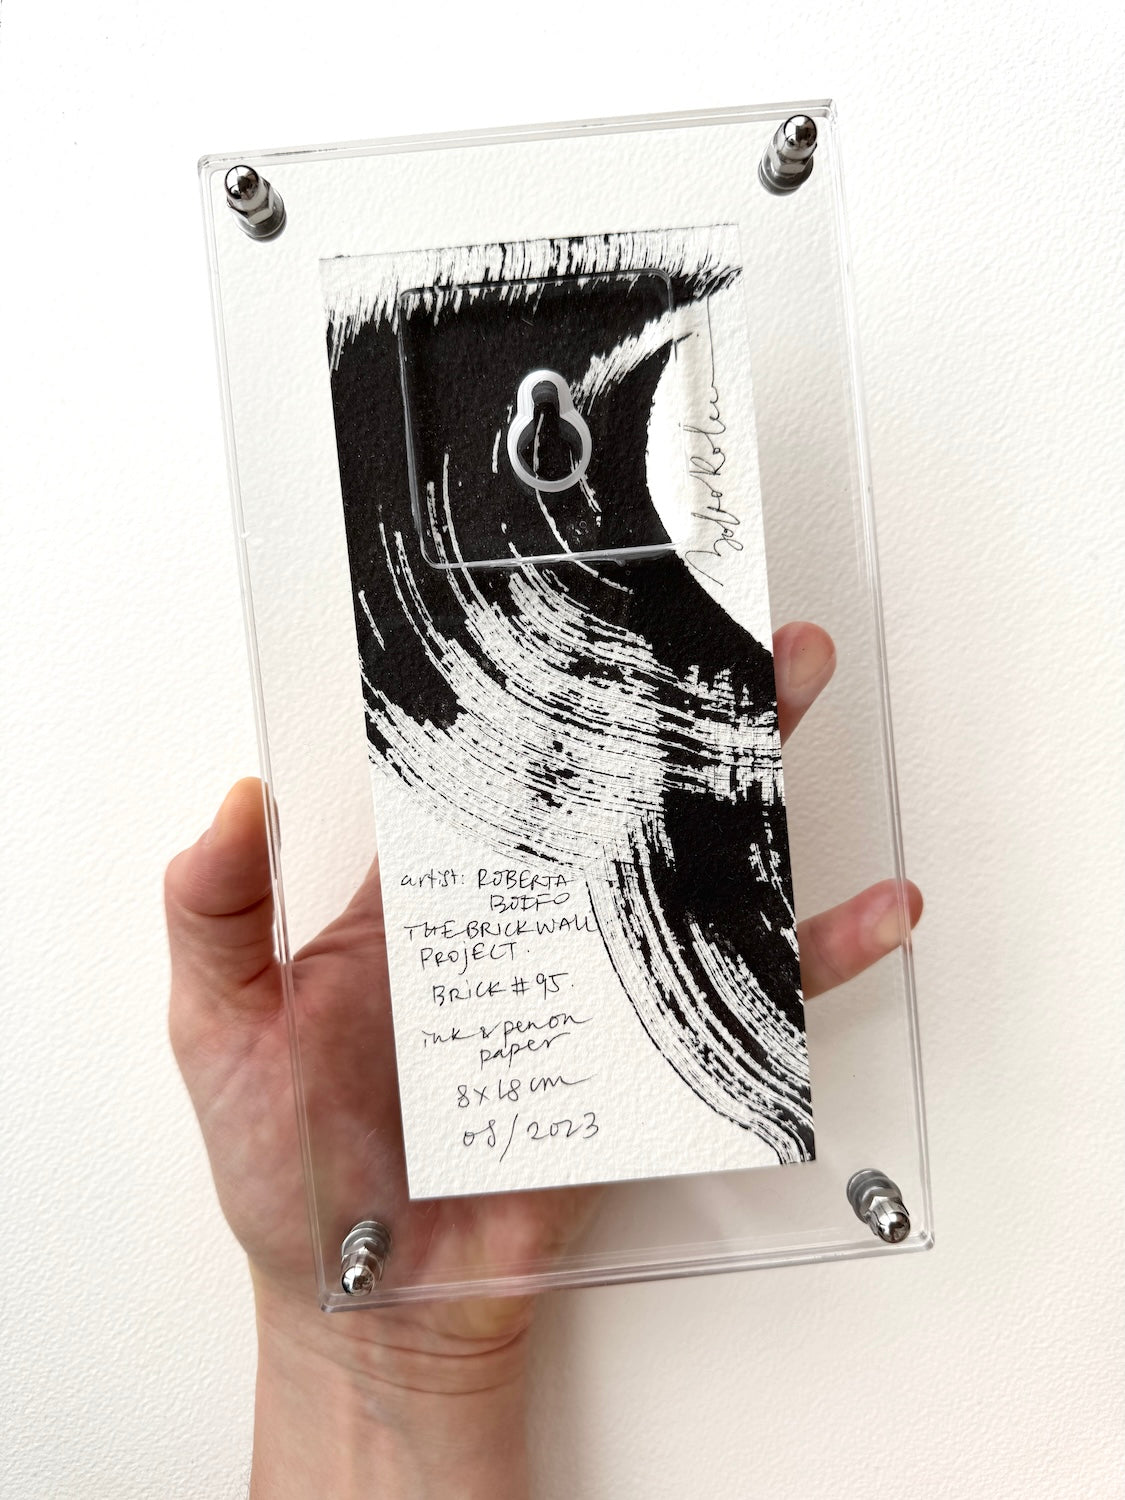 artist: ROBERTA
BOFFO
THE BRICK WALL
PROJECT.
BRICK # 95.
ink & pen on
paper
8x18 cm
08/2023